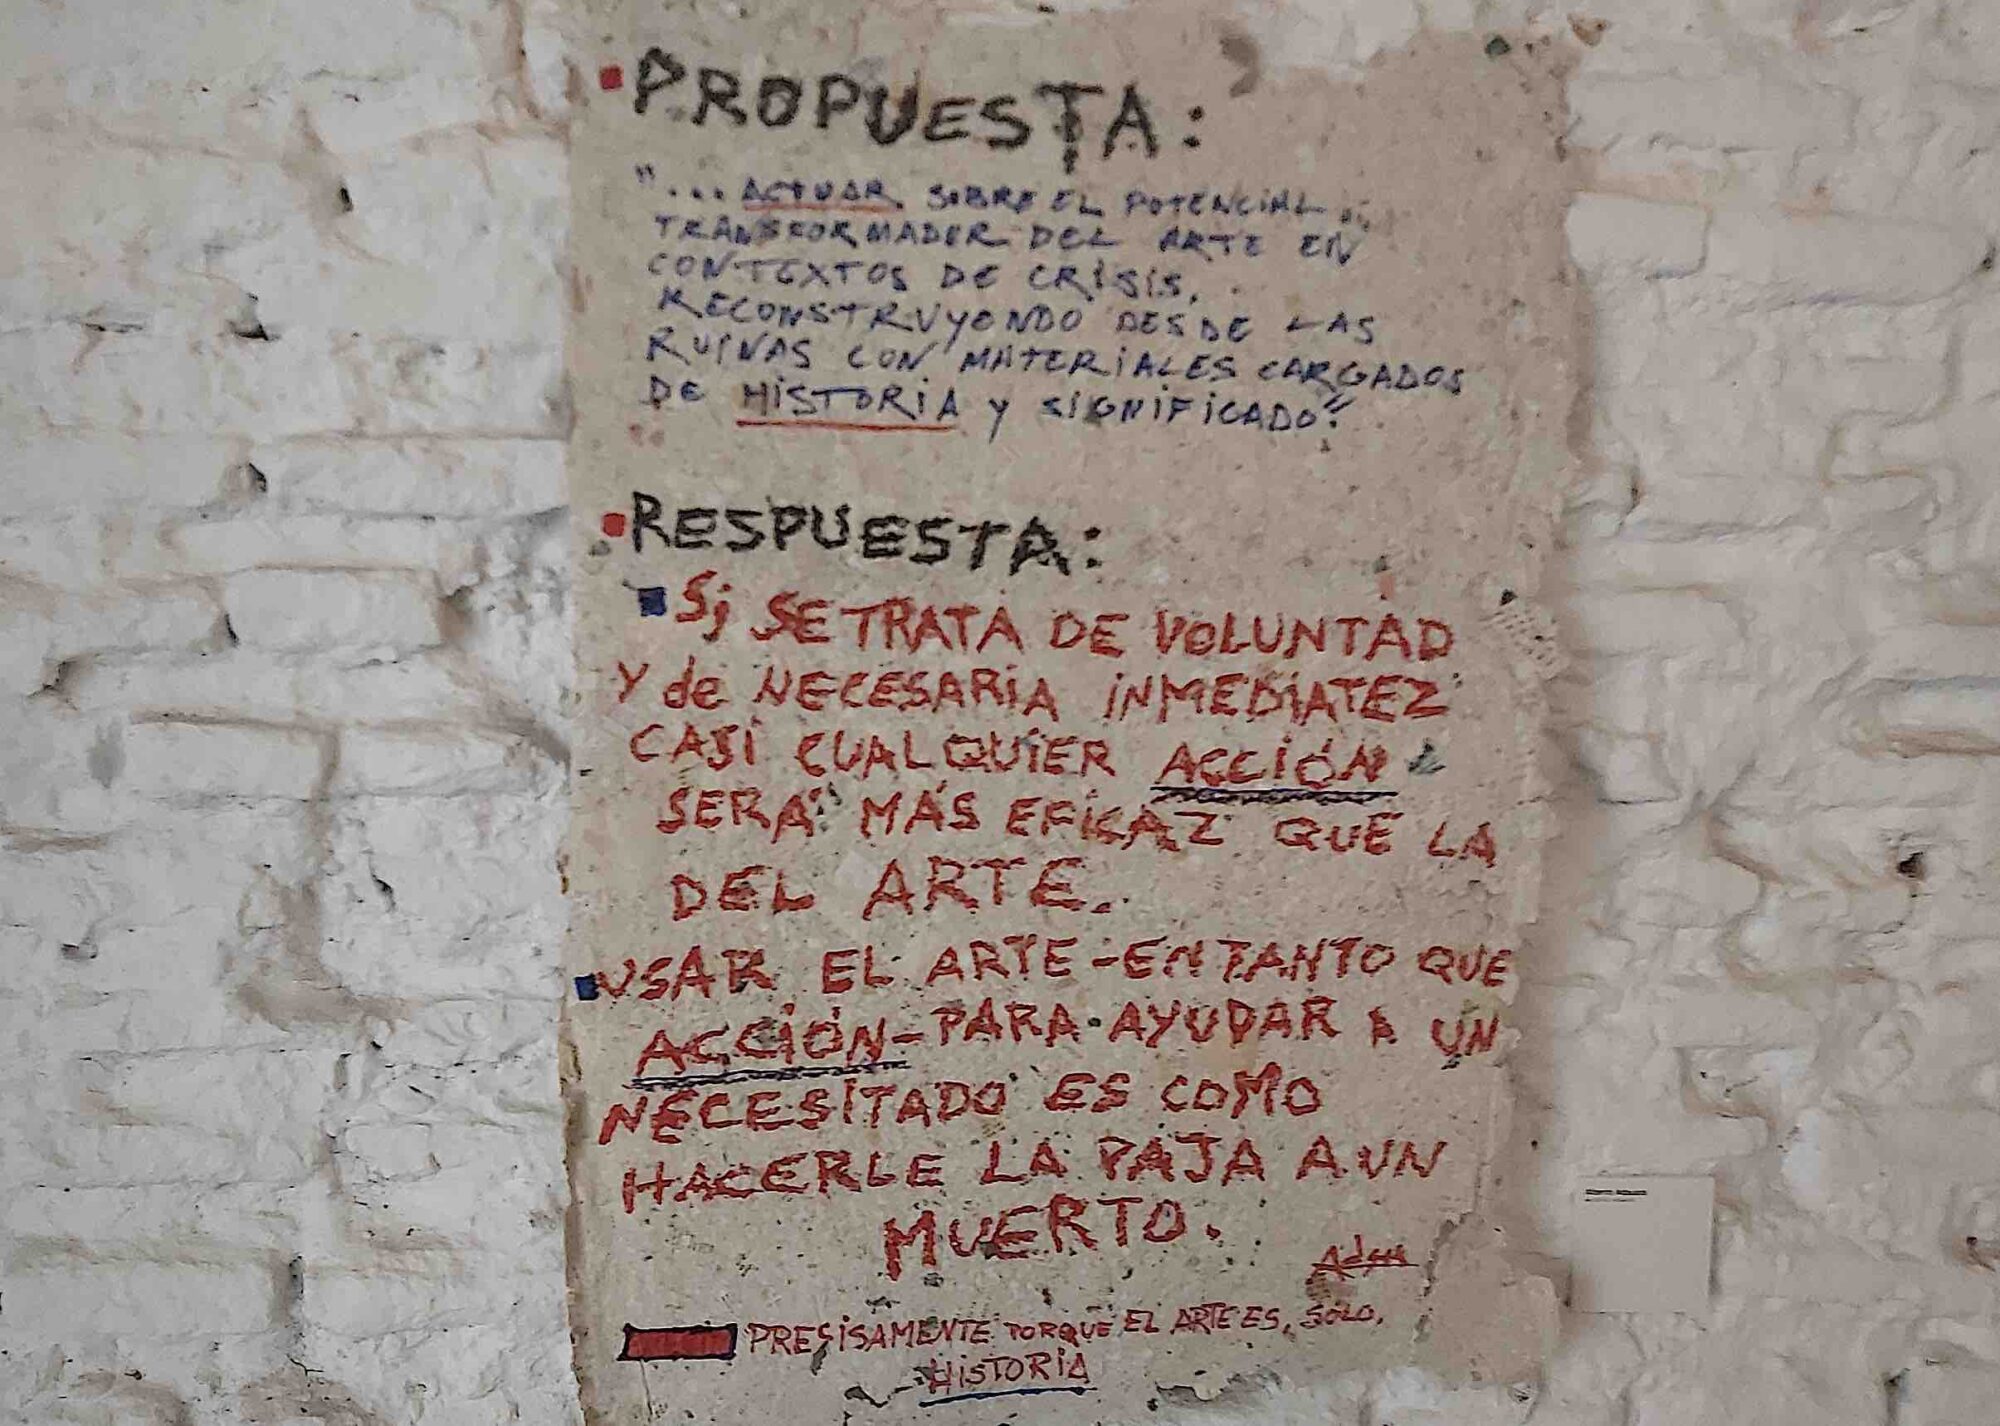 PROPUESTA:
"... ACTUAR SOBRE EL POTENCIAL
TRANSFORMADOR DEL ARTE EN
CONTEXTOS DE CRISIS,
RECONSTRUYENDO DESDE LAS
RUINAS CON MATERIALES CARGADOS
DE HISTORIA y SIGNIFICADO".
RESPUESTA:
Si SE TRATA DE VOLUNTAD
Y de NECESARIA INMEDIATEZ
CASI CUALQUIER ACCIÓN
SERÁ MÁS EFICAZ QUE LA
DEL ARTE.
USAR EL ARTE-EN TANTO QUE
ACCIÓN-PARA AYUDAR A UN
NECESITADO ES COMO
HACERLE LA PAJA A UN
MUERTO.
PRECISAMENTE PORQUE EL ARTE ES, SOLO,
HISTORIA